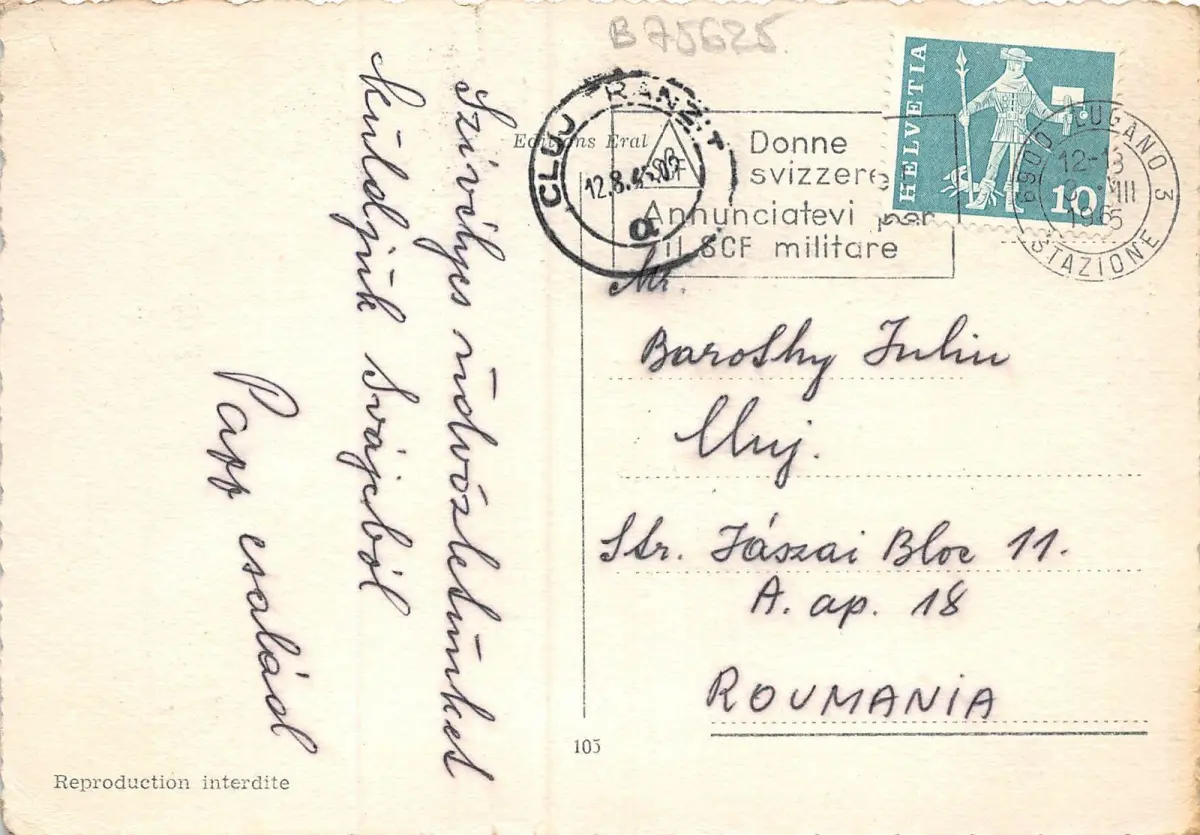 B75625
Editions Eral
CLUJ TRANZIT
12.8.65.07
a
SCF
Donne
svizzere
Annunciatevi per
il SCF militare
HELVETIA
10
6900 LUGANO 3
12-13
VIII
1965
STAZIONE
Szívélyes üdvözletünket
küldjük Svájcból
Papp család
Mr.
Barothy Iuliu
Cluj.
Str. Jászai Bloc 11.
A. ap. 18
ROUMANIA
105
Reproduction interdite